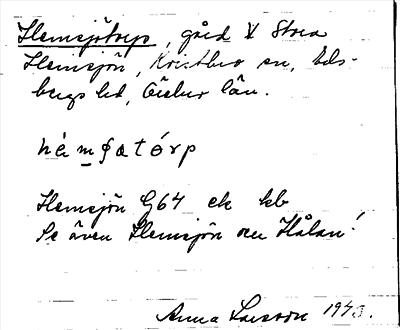 Hemsjötorp, gård V Stora
Hemsjön, Kristbro sn, Eds-
bergs hd, Örebro län.
hèmʃɑtórp
Hemsjön G64 ek kb
Se även Hemsjön ... Hålan!
Anna Larsson 1943.